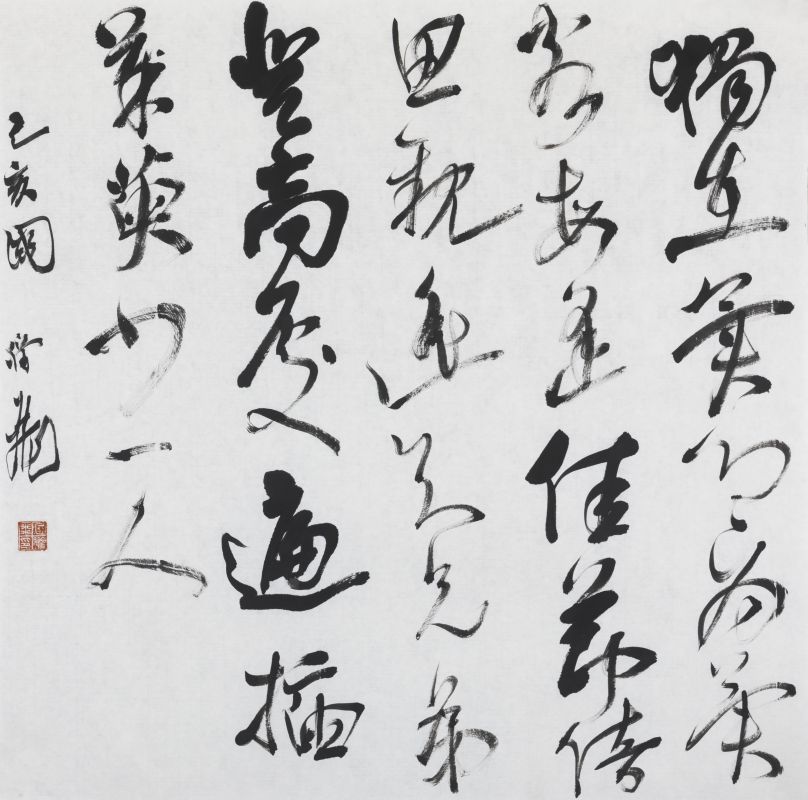 獨在異鄉為異
客每逢佳節倍
思親遙知兄弟
登高處遍插
茱萸少一人
己亥國